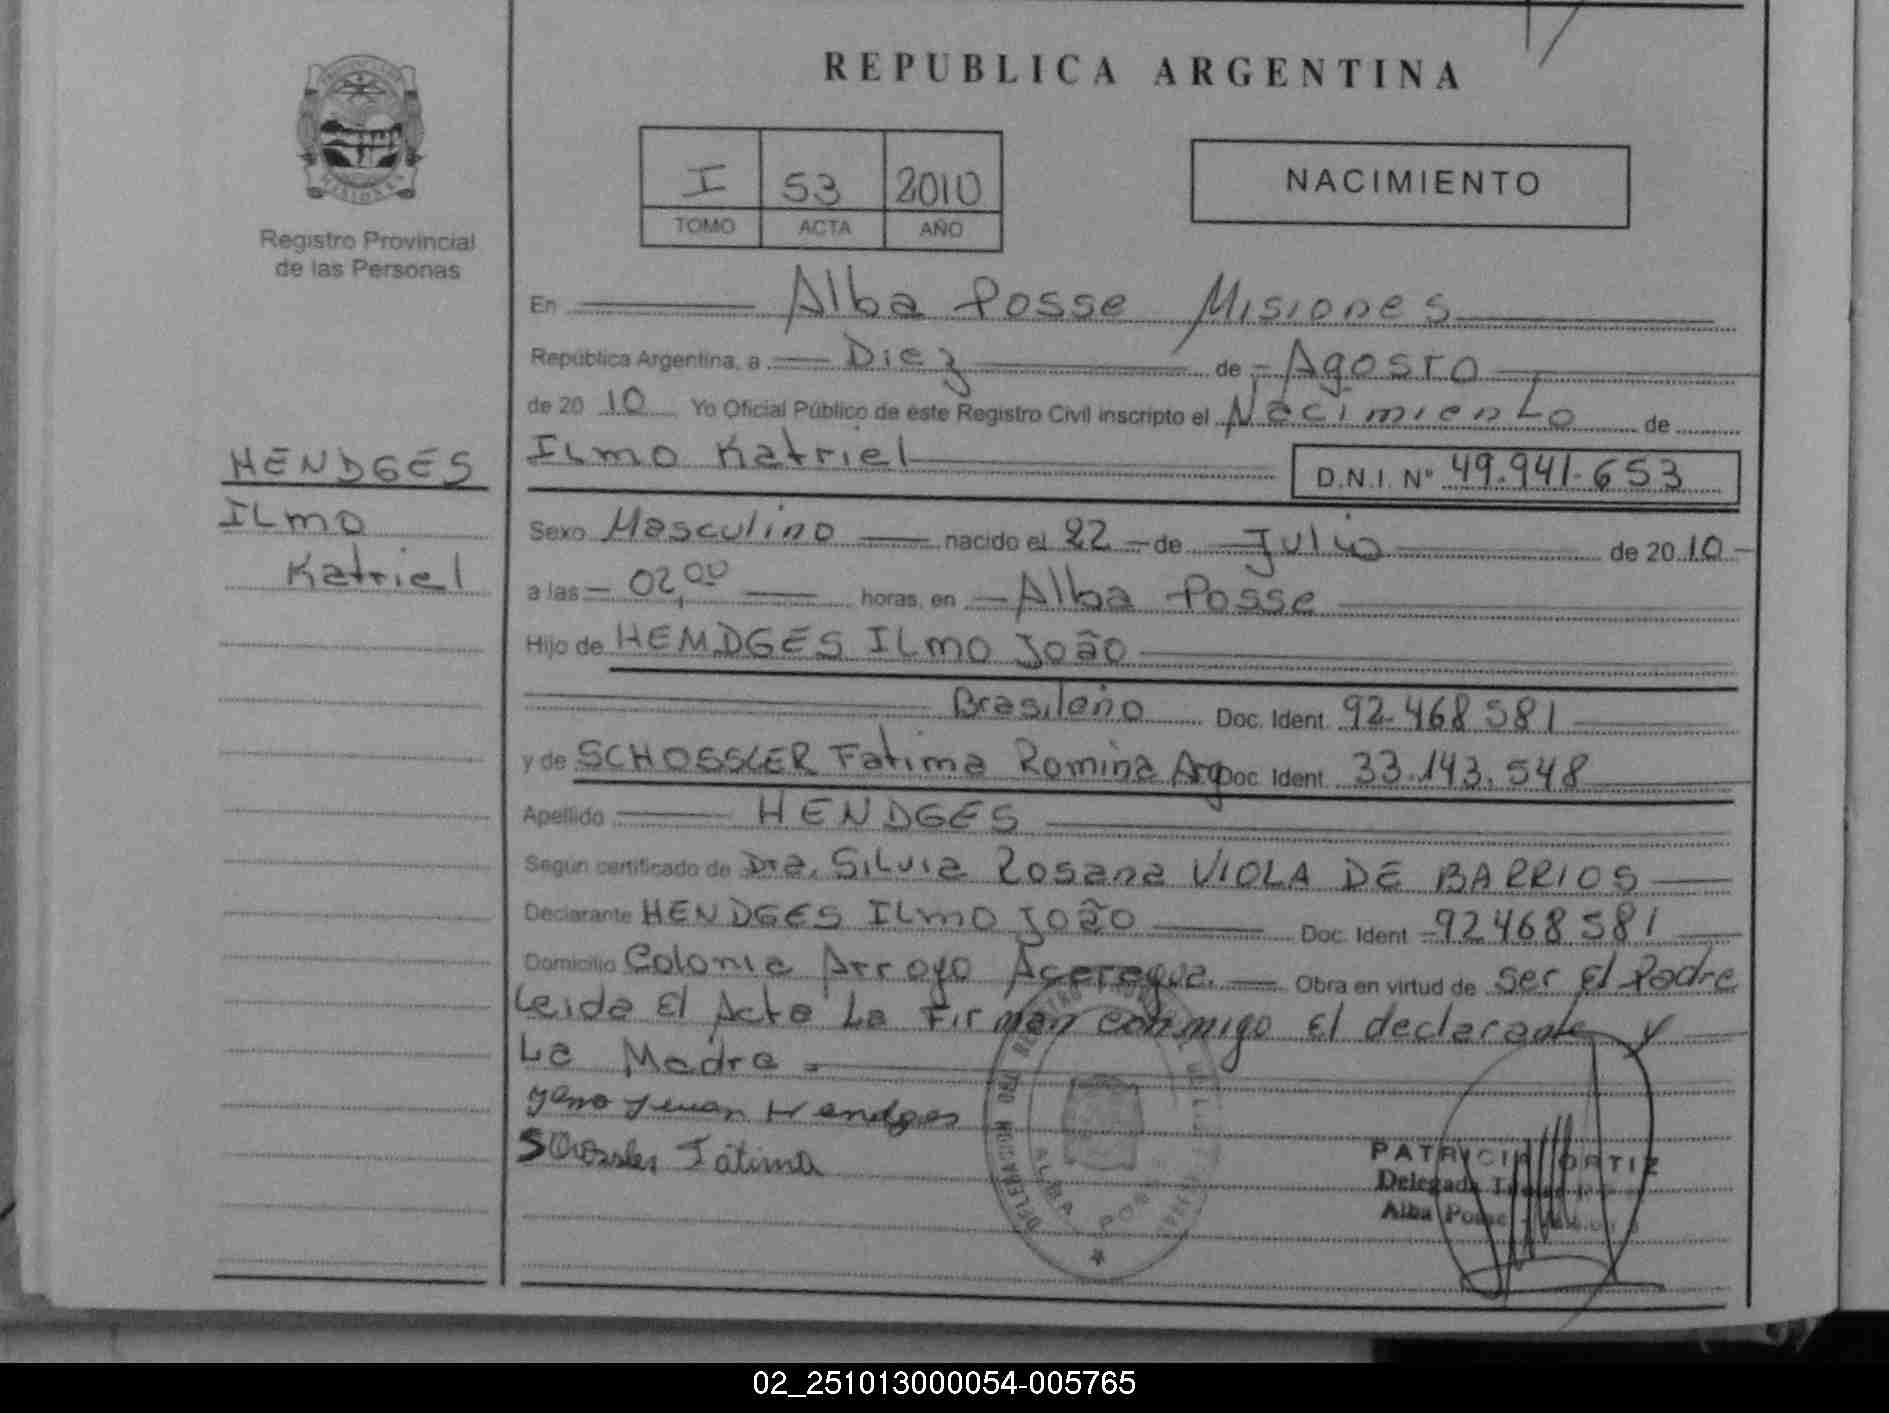 REPUBLICA ARGENTINA
I 53 2010
TOMO ACTA AÑO
NACIMIENTO
Registro Provincial
de las Personas
HENDGES
ILmo
Katriel
En Alba Posse Misiones
República Argentina, a Diez de Agosto
de 2010 Yo Oficial Público de este Registro Civil inscripto el Nacimiento de
ILmo Katriel D.N.I. Nº 49.941.653
Sexo Masculino nacido el 22 de Julio de 2010
a las 02,00 horas, en Alba Posse
Hijo de HEMDGES ILmo João
Brasileño Doc. Ident. 92.468581
y de SCHOSSLER Fatima Romina Arg Doc. Ident. 33.143.548
Apellido HENDGES
Según certificado de Dra. Silvia Rosana VIOLA DE BARRIOS
Declarante HENDGES ILmo João Doc. Ident. 92468581
Domicilio Colonia Arroyo Aceregua. Obra en virtud de ser El Padre
Leida El Acta La Firman conmigo El declarante y
La Madre
Hendges
Schossler Fátima
PATRICIA ORTIZ
Delegada
Alba Posse
ALBA POSSE
02_251013000054-005765